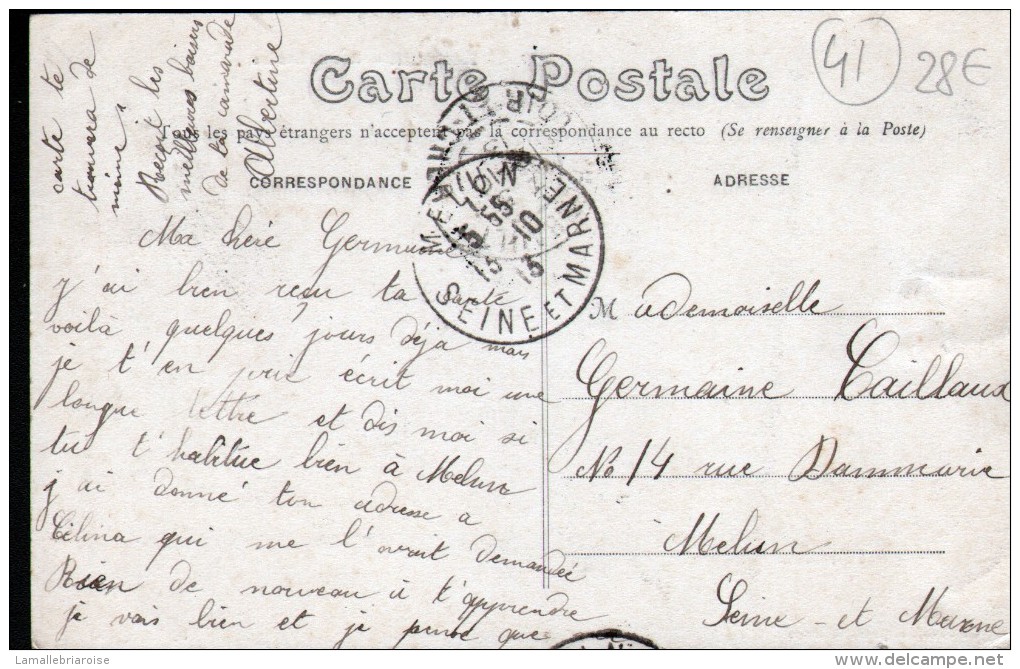 41
28€
Carte Postale
Tous les pays étrangers n'acceptent pas la correspondance au recto (Se renseigner à la Poste)
CORRESPONDANCE
ADRESSE
Ma chère Germaine
j'ai bien reçu ta carte
voilà quelques jours déja mais
je t'en prie écrit moi une
longue lettre et dis moi si
tu t'habitue bien à Melun
j'ai donné ton adresse a
Célina qui me l'avait demandée
Rien de nouveau à t'apprendre
je vais bien et je pense que
carte te
trouvera de
même
Reçoit les
meilleures baisers
de ta camarade
Albertine
Mademoiselle
Germaine Caillaux
No 14 rue Dammarie
Melun
Seine-et Marne
SEINE ET MARNE
Lamallebriaroise
www.delcampe.net